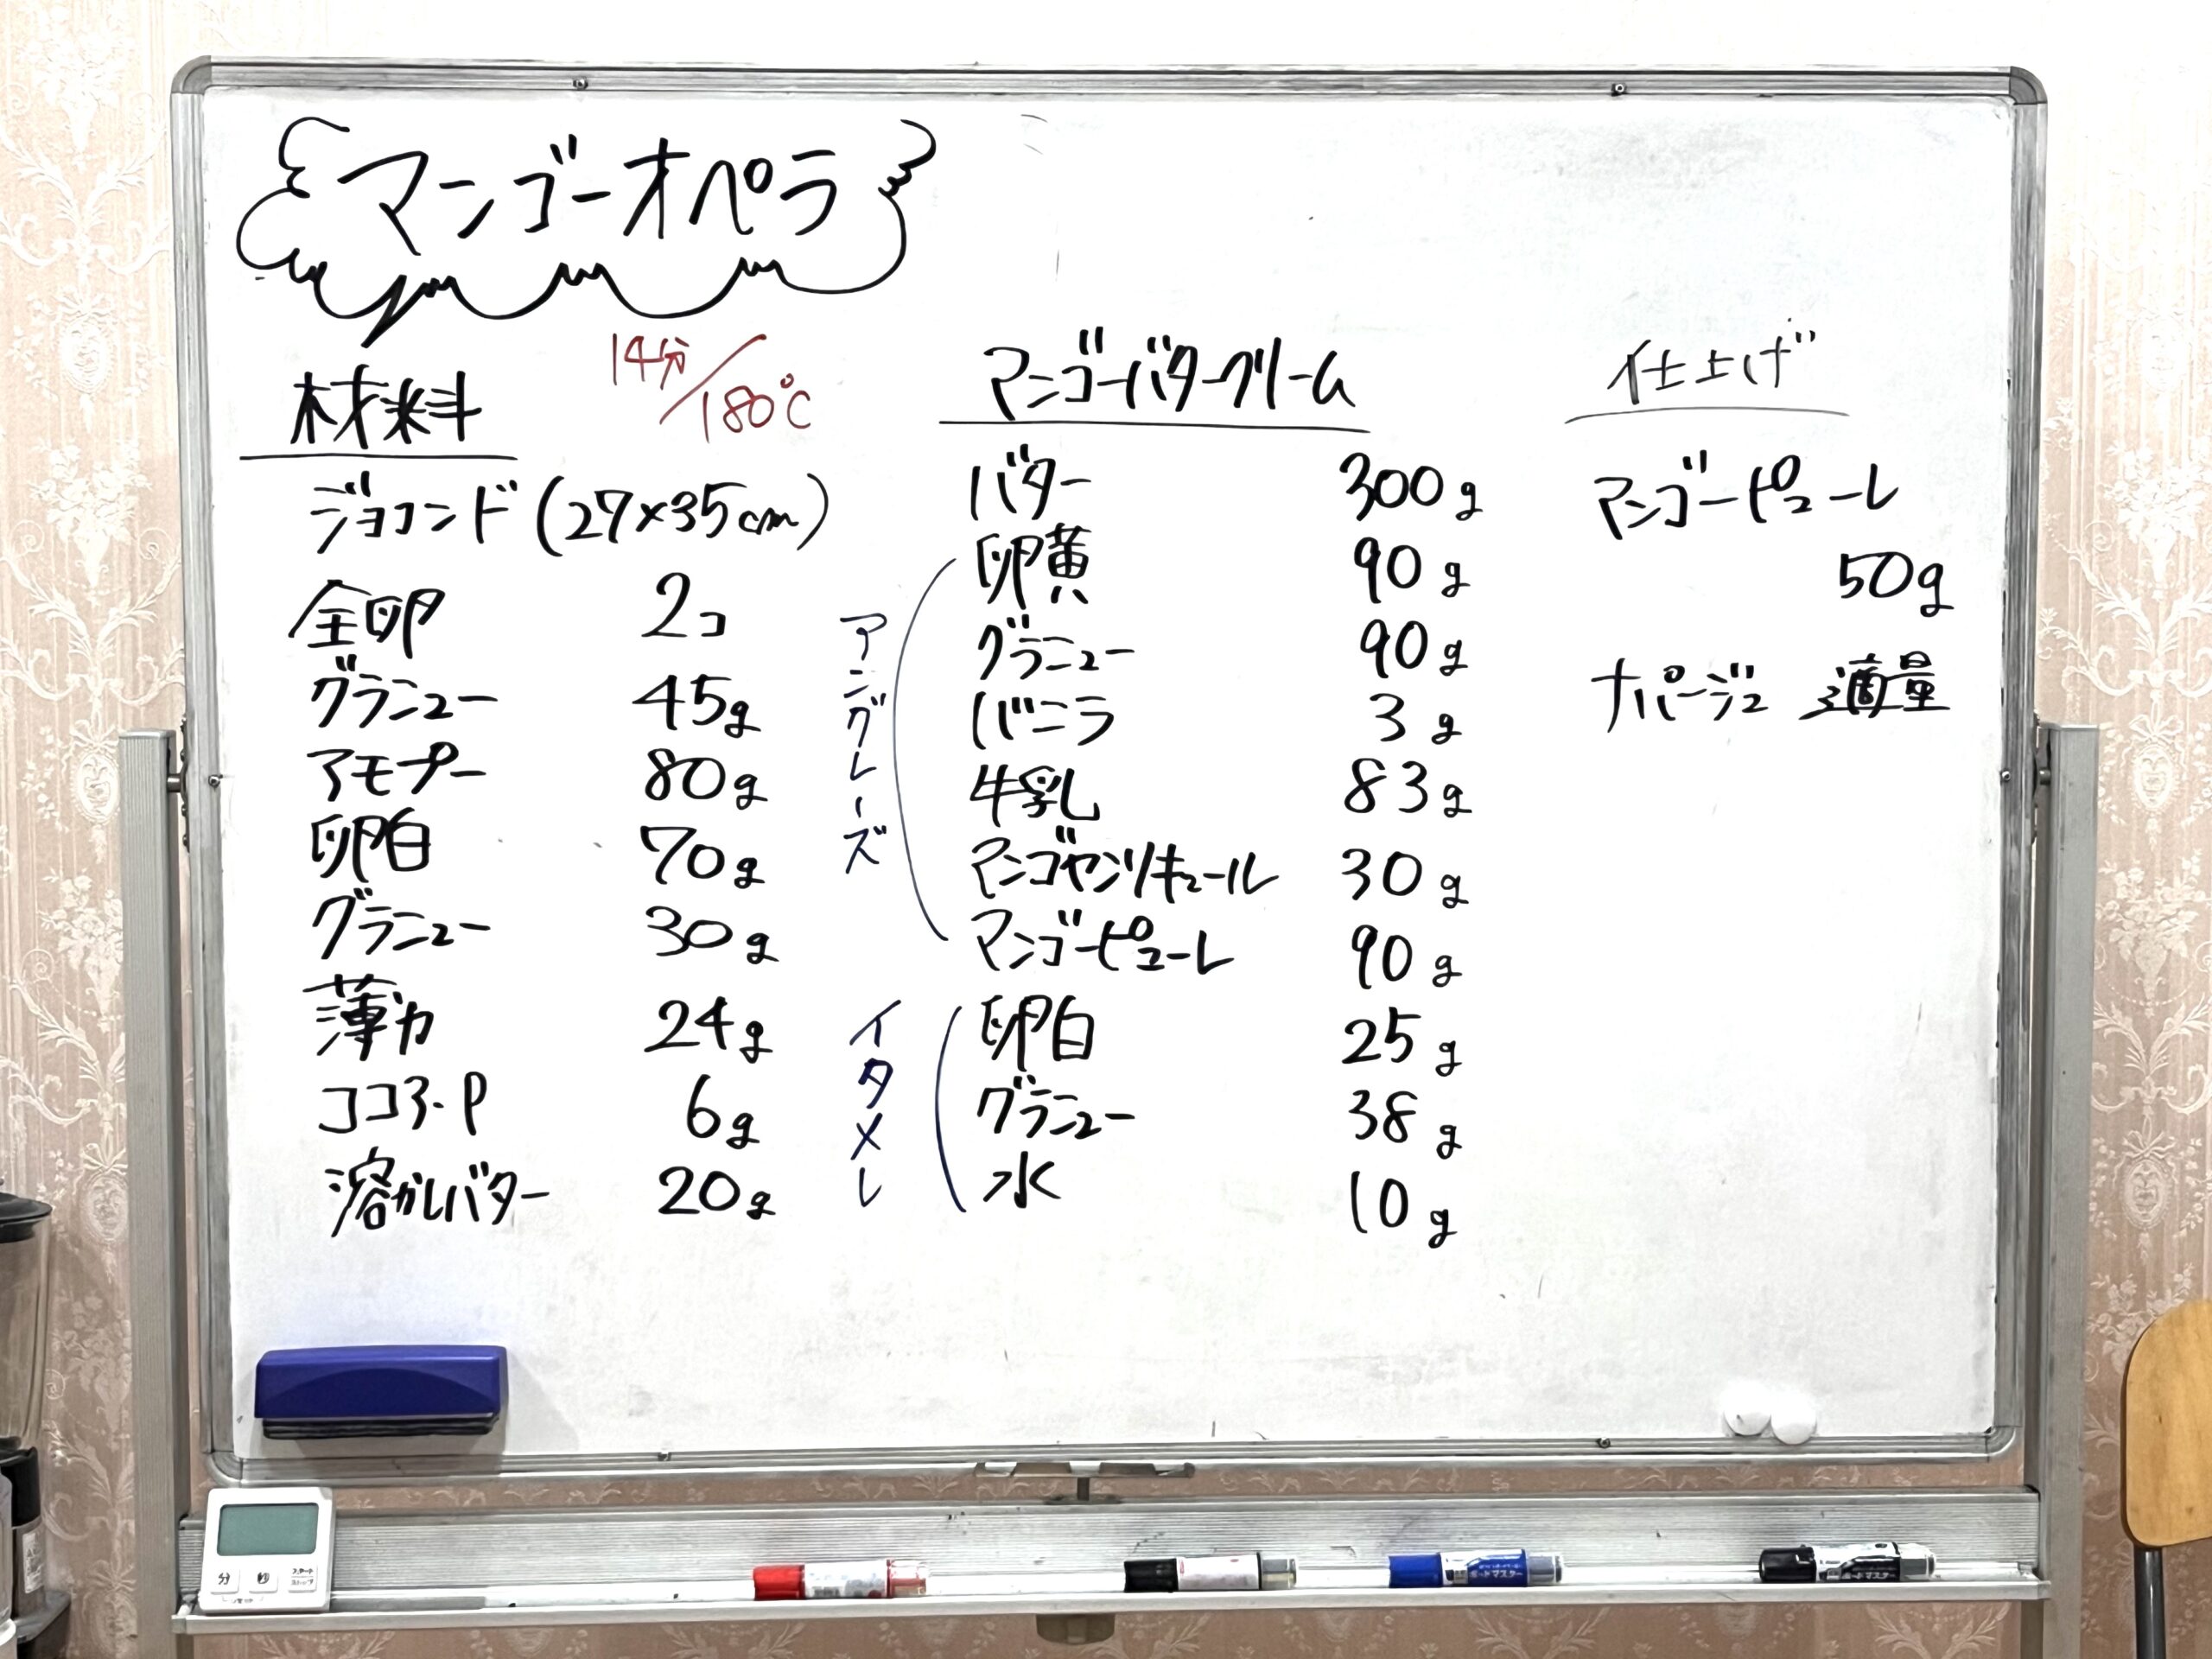 マンゴーオペラ
材料
14分/180℃
ジョコンド(27×35cm)
全卵 2コ
グラニュー 45g
アモプー 80g
卵白 70g
グラニュー 30g
薄力 24g
ココア・P 6g
溶かしバター 20g
マンゴーバタークリーム
バター 300g
アングレーズ
卵黄 90g
グラニュー 90g
バニラ 3g
牛乳 83g
マンゴヤンリキュール 30g
マンゴーピューレ 90g
イタメレ
卵白 25g
グラニュー 38g
水 10g
仕上げ
マンゴーピューレ
50g
ナパージュ 適量
分 秒
ボードマスター